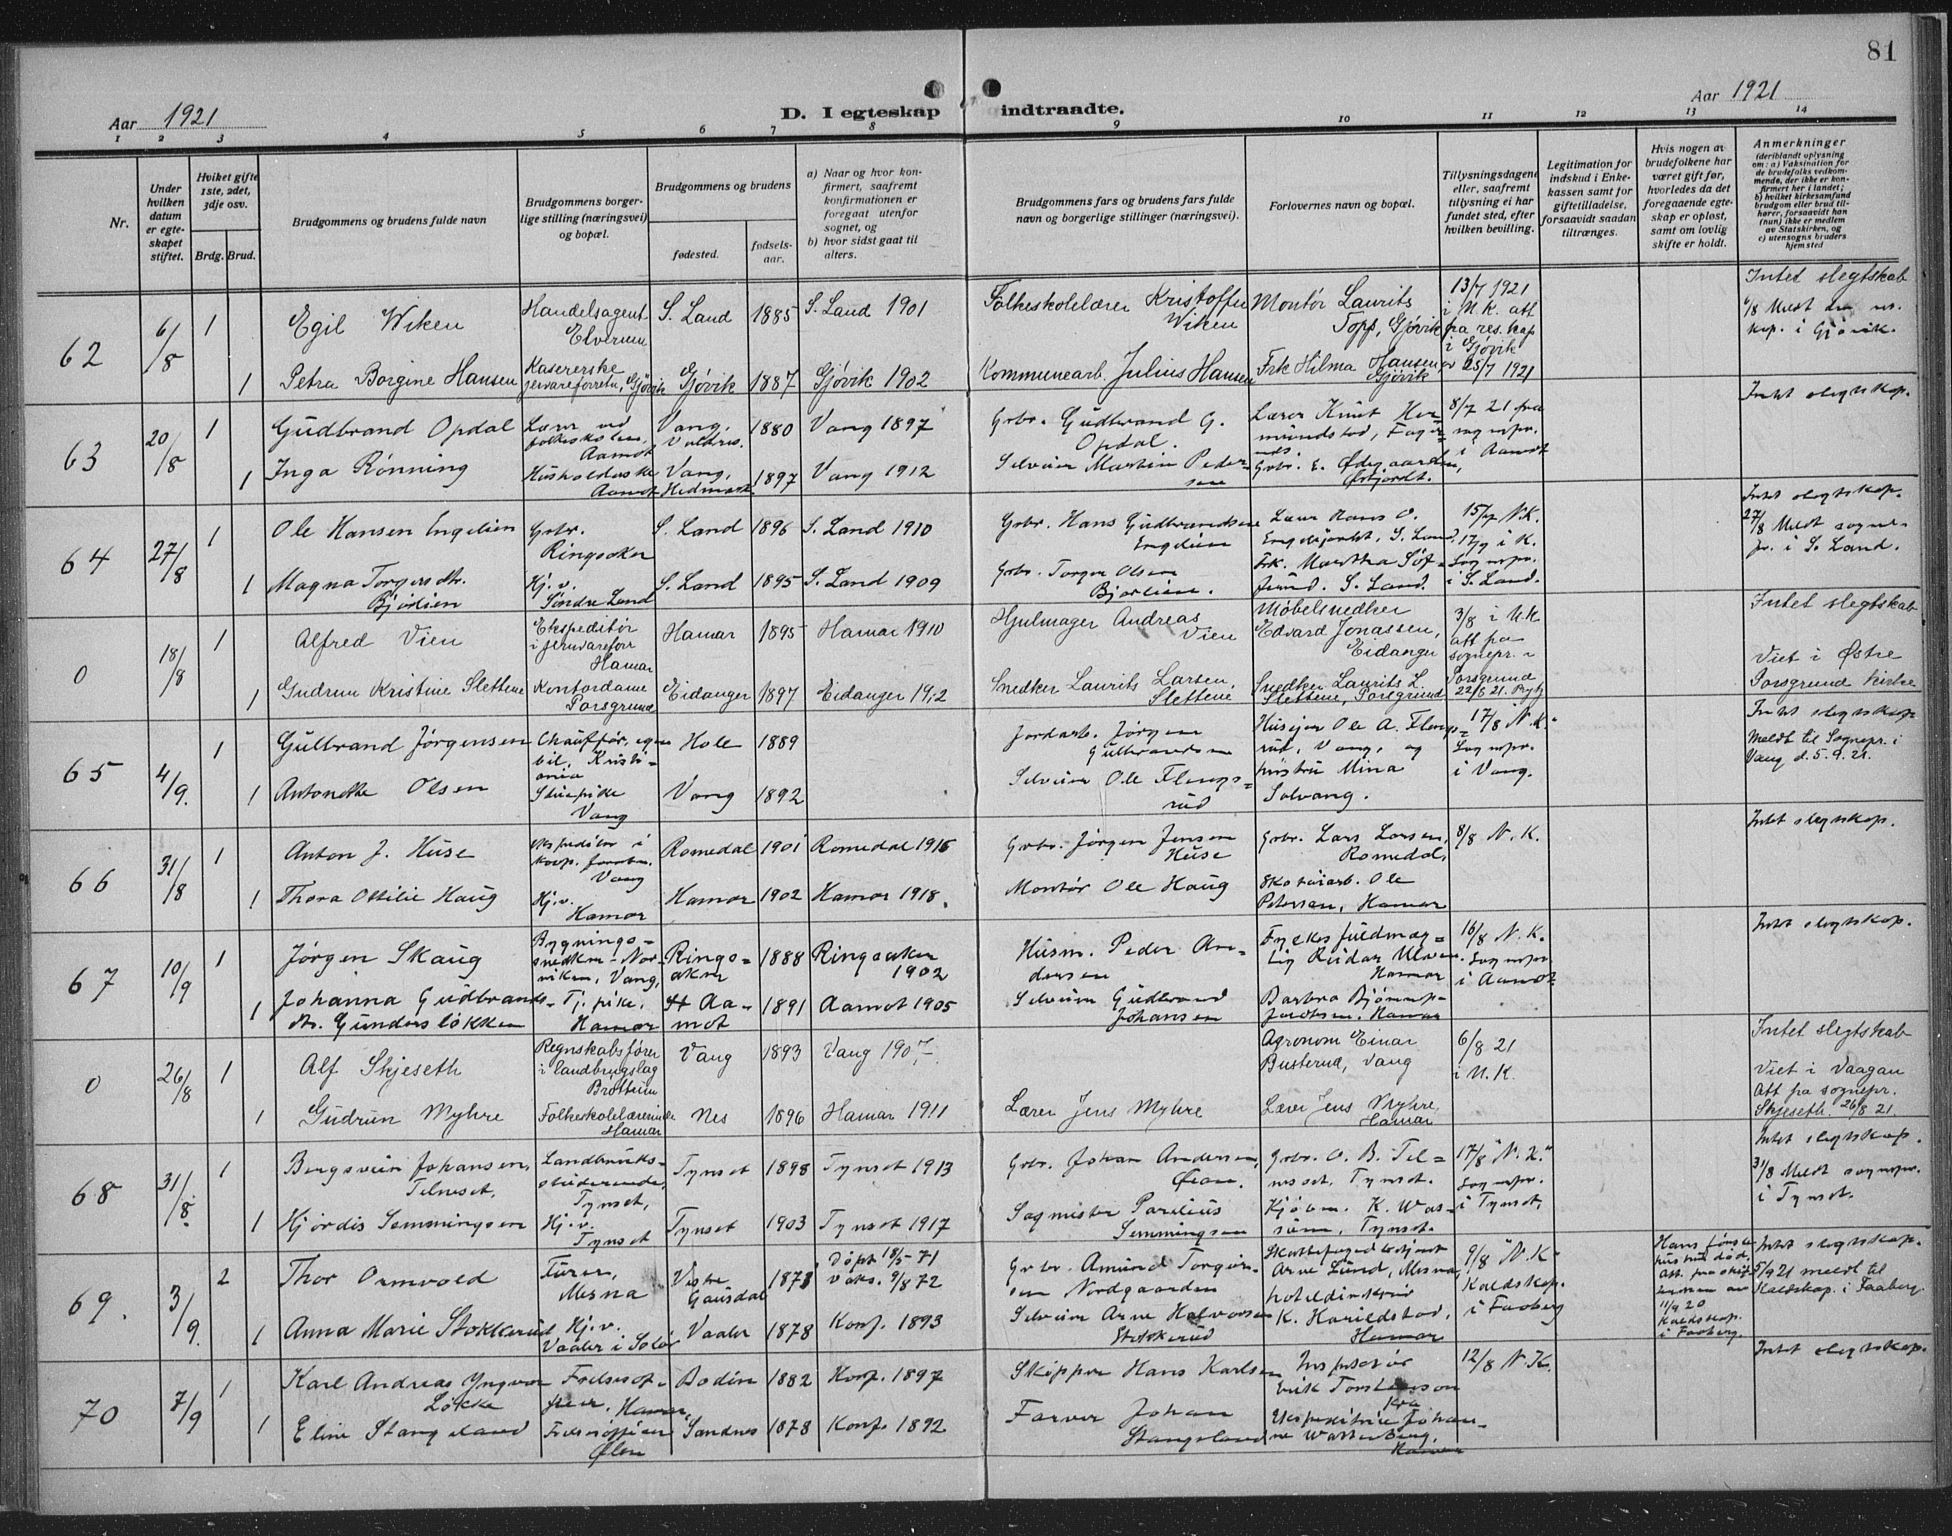 81
Aar 1921
D. I egteskap indtraadte.
Aar 1921
1 2 3 4 5 6 7 8 9 10 11 12 13 14
Nr.
Under hvilken datum er egteskapet stiftet.
Hviket gifte 1ste, 2det, 3dje osv.
Brdg. Brud.
Brudgommens og brudens fulde navn
Brudgommens borgerlige stilling (næringsvei) og bopæl.
Brudgommens og brudens
fødested.
fødselsaar.
a) Naar og hvor konfirmert, saafremt konfirmationen er foregaat utenfor sognet, og
b) hvor sidst gaat til alters.
Brudgommens fars og brudens fars fulde navn og borgerlige stillinger (næringsvei).
Forlovernes navn og bopæl.
Tillysningsdagene eller, saafremt tillysning ei har fundet sted, efter hvilken bevilling.
Legitimation for indskud i Enkekassen samt for giftetilladelse, forsaavidt saadan tiltrænges.
Hvis nogen av brudefolkene har været gift før, hvorledes da det foregaaende egteskap er opløst, samt om lovlig skifte er holdt.
Anmerkninger
(deriblandt oplysning om: a) Vaksination for de brudefolks vedkommende, der ikke er konfirmert her i landet; b) hvilket kirkesamfund brudgom eller brud tilhører, forsaavidt han (hun) ikke er medlem av Statskirken, og c) utensogns bruders hjemsted
62 6/8 1 Egil Wiken Handelsagent Elverum S. Land 1885 S. Land 1901 Folkeskolelærer Kristoffer Wiken Montør Laurits Topp, Gjøvik 13/7 1921 i N.K. att fra res. kap i Gjøvik Intet slegtskab 6/8 Meldt kap. i Gjøvik.
1 Petra Borgine Hansen Kasererske jernvareforretn., Gjøvik Gjøvik 1887 Gjøvik 1902 Kommunearb. Julius Hansen Frk Hilma Hansen Gjøvik 25/7 1921
63 20/8 1 Gudbrand Opdal Lærer ved folkeskolen, Aamot Vang, Valdres. 1880 Vang 1897 Grbr. Gudbrand G. Opdal. Lærer Knut Hermundstad, Fagernes 8/7 21 fra sognepr. i Aamot Intet slegtskap.
1 Inga Rønning Husholderske Aamot Vang, Hedmark. 1897 Vang 1912 Selveier Martin Pedersen Grbr. E. Ødegaarden, Østfjordt.
64 27/8 1 Ole Hansen Engelien Grbr. Ringsaker S. Land 1896 S. Land 1910 Grbr. Hans Gudbrandsen Engelien Lærer Hans O. Engelien S. Land N.K. Intet slegtskap. 27/8 Meldt sognepr. i S. Land.
1 Magna Torgersdtr. Bjørlien Hj. v. Søndre Land S. Land 1895 S. Land 1909 Grbr. Torger Olsen Bjørlien. Frk. Martha S. Land. Sognepr. i S. Land.
0 18/8 1 Alfred Vien Ekspeditør i jernvareforr Hamar Hamar 1895 Hamar 1910 Hjulmager Andreas Vien Møbelsnedker Edvard Jonassen, Eidanger 3/8 i N.K att fra sognepr. i Intet slegtskab
1 Gudrun Kristine Slettene Kontordame Porsgrund Eidanger 1897 Eidanger 1912 Snedker Laurits Larsen Slettene Snedker Laurits L. Slettene, Porsgrund Porsgrund 22/8 21. Viet i Østre Porsgrund kirke
65 4/9. 1 Gulbrand Jørgensen Chauffør, egen bil, Kristiania Hole 1889 Jordarb. Jørgen Gulbrandsen Husejer Ole A. Flengsrud, Vang, og 17/8 N.K. Sognepr. i Vang. Intet slegtskap Meldt til Sognepr. i Vang d. 5.9.21.
1 Antonette Olsen Stuepike Vang Vang 1892 Selveier Ole Flengsrud hustru Mina Solvang.
66 31/8 1 Anton J. Huse ekspeditør i koop. foretn. Vang Romedal 1901 Romedal 1916 Grbr. Jørgen Jensen Huse Grbr. Lars Larsen, Romedal, 8/8 N.K. Intet slegtskap.
1 Thora Ottilie Haug Hj. v. Hamar Hamar 1902 Hamar 1918. Montør Ole Haug Skotøiarb. Ole Petersen, Hamar
67 10/9 1 Jørgen Skaug Bygningssnedker - Norviken, Vang, Ringsaker 1888 Ringsaker 1902 Husm. Peder Andersen Fylkesfuldmægtig Reidar Ulven Hamar 16/8 N.K. Sognepr. i Aamot Intet slegtskap.
1 Johanna Gudbrandsdtr. Gundersløkken Tj. pike, Hamar Aamot 1891 Aamot 1905 Selveier Gudbrand Johansen Barbra Hamar
0 26/8 1 Alf Skjeseth Regnskabsfører i landbrugslag Brøttum Vang 1893 Vang 1907 Agronom Einar Busterud, Vang 6/8 21 i N.K. Intet slegtskab
1 Gudrun Myhre Folkeskolelærerinde Hamar Nes 1896 Hamar 1911 Lærer Jens Myhre Lærer Jens Myhre Hamar Viet i Vaagan Att fra sognepr. Skjeseth. 26/8 21.
68 31/8. 1 Bergsvein Johansen Telneset, Landbruksstuderende, Tynset, Tynset 1898 Tynset 1913 Grbr. Johan Andersen Øian. Grbr. O. B. Telneset, Tynset. 17/8 "N.K." Sognepr. i Tynset, Intet slegtskap. 31/8 Meldt sognepr. i Tynset.
1 Hjørdis Semmingsen Hj. v. Tynset Tynset 1903 Tynset 1917 Sagmester Parilius Semmingsen Kjøbm. K. Tynset.
69. 3/9. 2 Thor Ormvold Furer, Mesna Vestre Gausdal 1871 Døpt 18/5-71 vaks. 9/8 72 Grbr. Amund Torgersen Nordgaarden Arne Lund, Mesna, 9/8 "N.K" Kaldskap. i Faaberg Hans første hustru død. Att. fra 11/9 20 Kaldskap. i Faaberg. Intet slegtskap. 5/9 21 meldt til Kaldskap. i Faaberg.
1 Anna Marie Stokkerud Hj. v. Vaaler i Solør Vaaler 1878 Konf. 1893 Selveier Arne Halvorsen Stokkerud K. Harildstad, Hamar
70 7/9 1 Karl Andreas Yngvar Løkke Frelsesoffiser, Hamar, Bodin 1882 Konf. 1897 Skipper Hans Karlsen Inspektør Erik Torstensson Kra 12/8 N.K. Intet slegtskap.
1 Eline Stangeland Frelsesoffiser Ølen Sandnes 1878 Konf. 1892 Farver Johan Stangeland Ekspeditrice Johanne Hamar